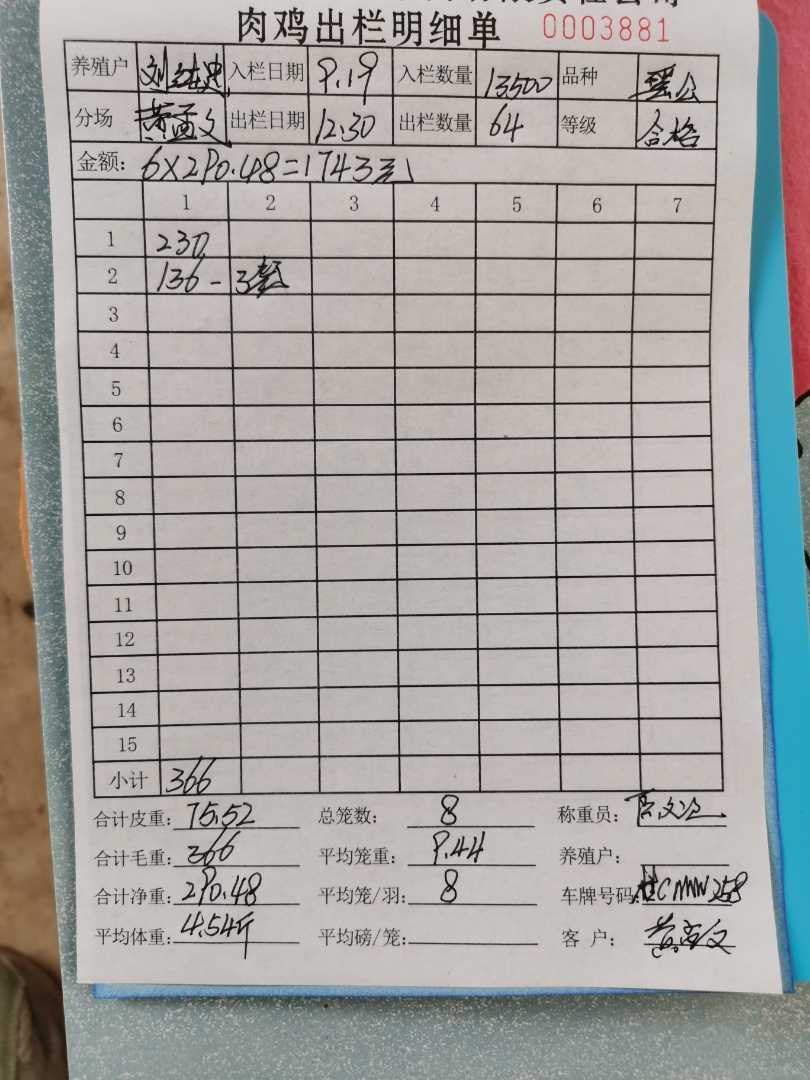 肉鸡出栏明细单 0003881
养殖户 入栏日期 9.19 入栏数量 13500 品种 瑶公
分场 黄孟文 出栏日期 12.30 出栏数量 64 等级 合格
金额: 6×290.48=1743元
1 2 3 4 5 6 7
1 230
2 136 - 3
3
4
5
6
7
8
9
10
11
12
13
14
15
小计 366
合计皮重: 75.52 总笼数: 8 称重员:
合计毛重: 366 平均笼重: 9.44 养殖户:
合计净重: 290.48 平均笼/羽: 8 车牌号码:
平均体重: 4.54斤 平均磅/笼: 客 户: 黄孟文